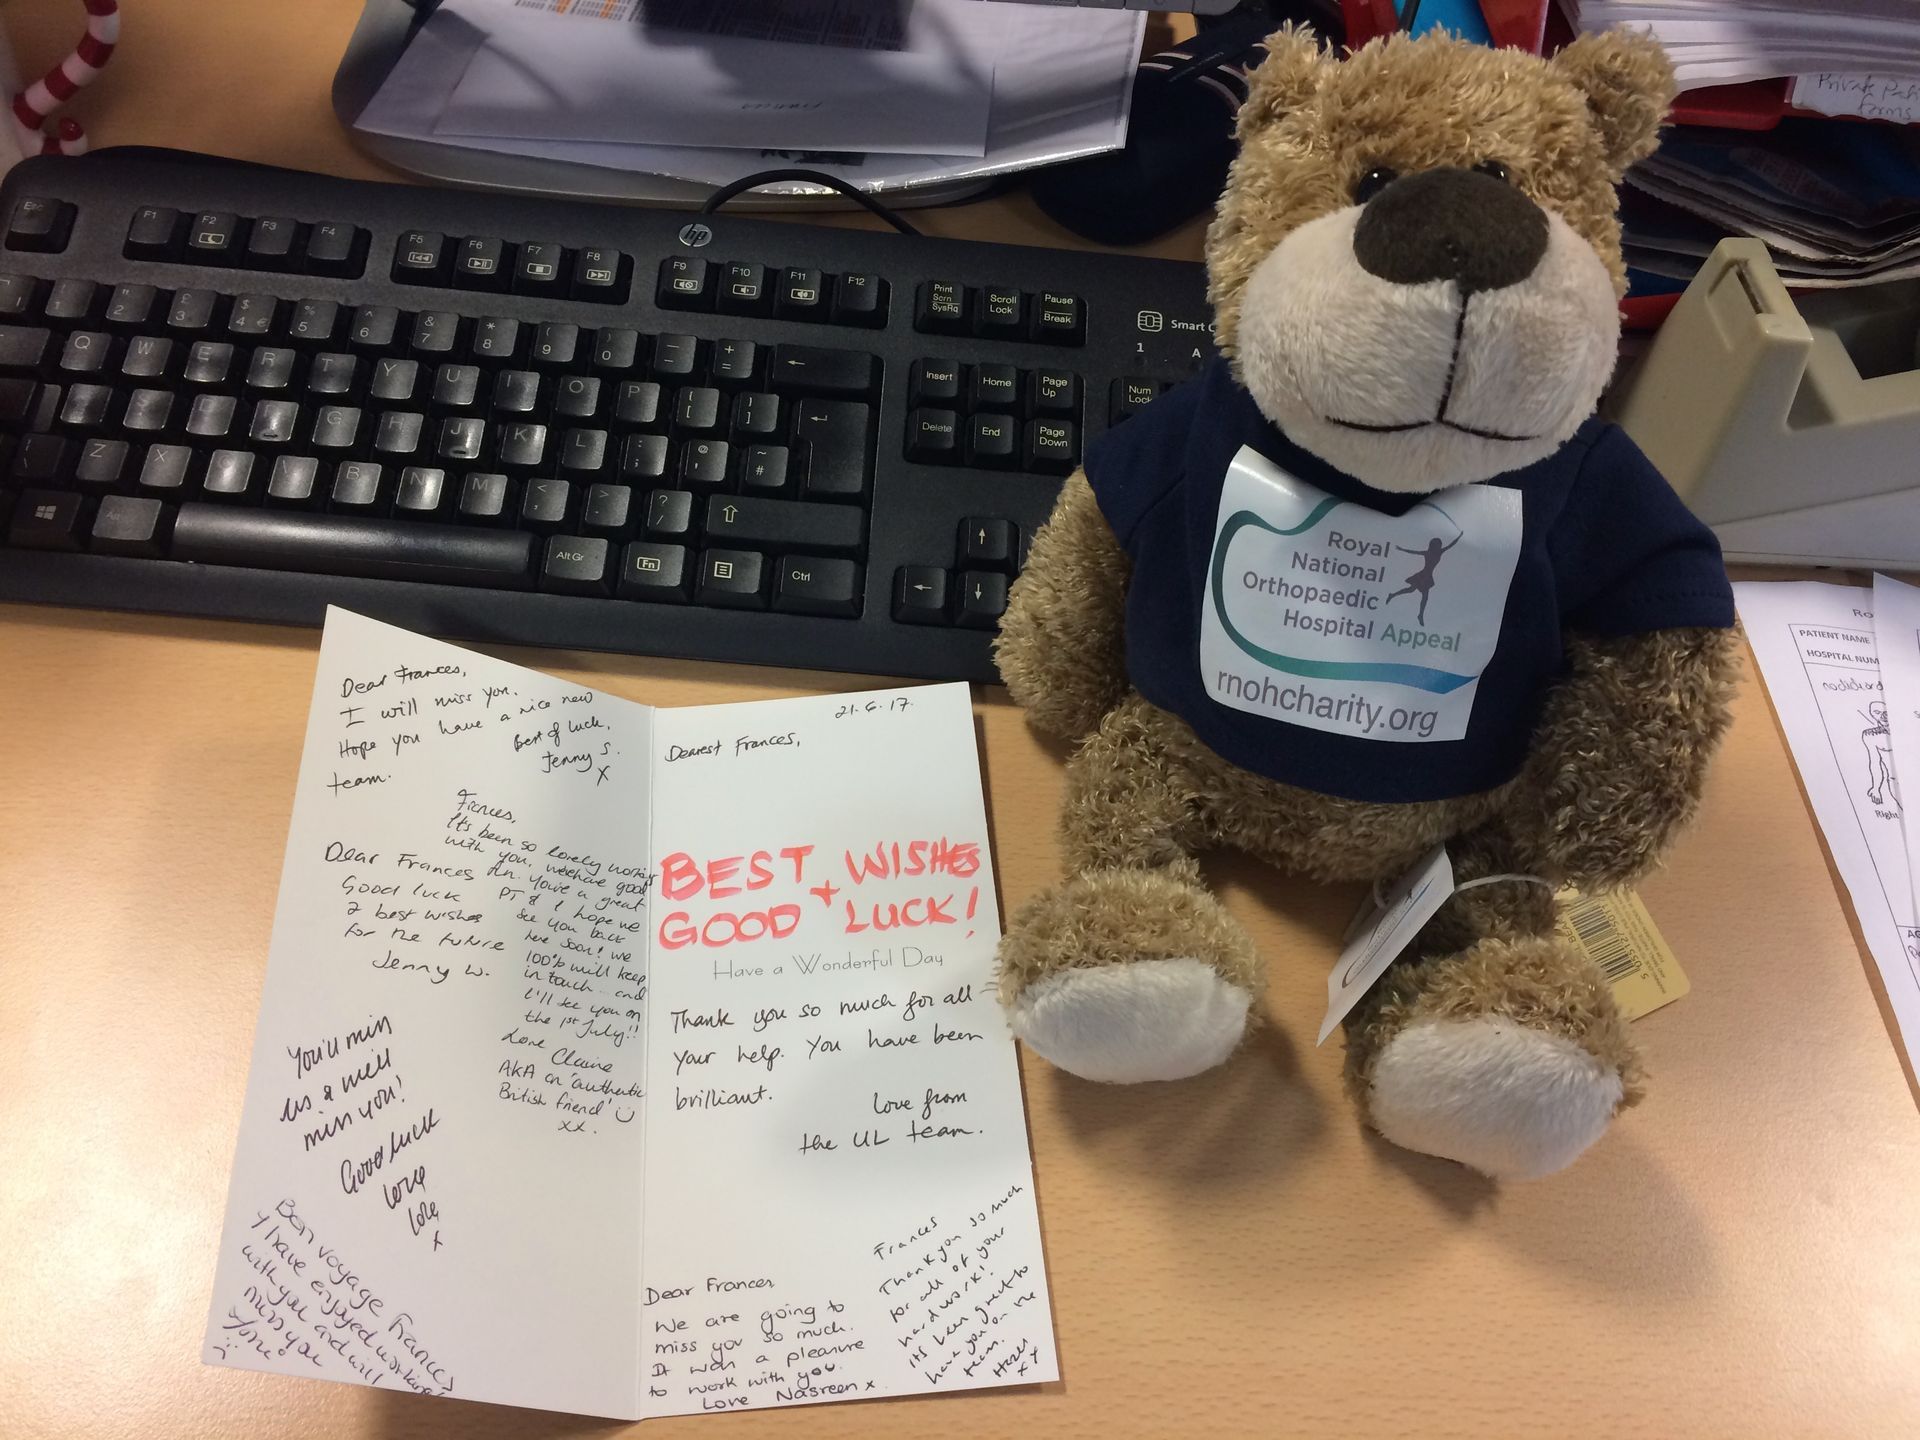 Private
forms
Esc
F1
F2
F3
F4
F5
F6
F7
F8
hp
F9
F10
F11
F12
Print
Scrn
SysRq
Scroll
Lock
Pause
Break
Smart
1
A
Insert
Home
Page
Up
Num
Lock
Delete
End
Page
Down
Q W E R T Y U I O P
Z X C V B N M
Alt
Alt Gr
Fn
Ctrl
Royal
National
Orthopaedic
Hospital Appeal
rnohcharity.org
PATIENT NAME
HOSPITAL NUM
Right
Dear Frances,
I will miss you.
Hope you have a nice new
team.
Best of luck,
Jenny S.
X
Frances,
It's been so lovely working
with you, we have good
fun. You're a great
PT & I hope we
see you back
here soon! We
100% will keep
in touch... and
I'll see you on
the 1st July!!
Love Claire
AKA an 'authentic
British friend'
xx.
Dear Frances
Good luck
& best wishes
for the future
Jenny W.
You'll miss
us & we'll
miss you!
Good luck
love
x
Bon voyage Frances
I have enjoyed working
with you and will
miss you
21.6.17.
Dearest Frances,
BEST WISHES
+
GOOD LUCK!
Have a Wonderful Day
Thank you so much for all
your help. You have been
brilliant.
Love from
the UL team.
Dear Frances
We are going to
miss you so much.
It was a pleasure
to work with you.
Love Nasreen x
Frances
Thank you so much
for all of your
hard work!
It's been great to
have you on the
team.
xx